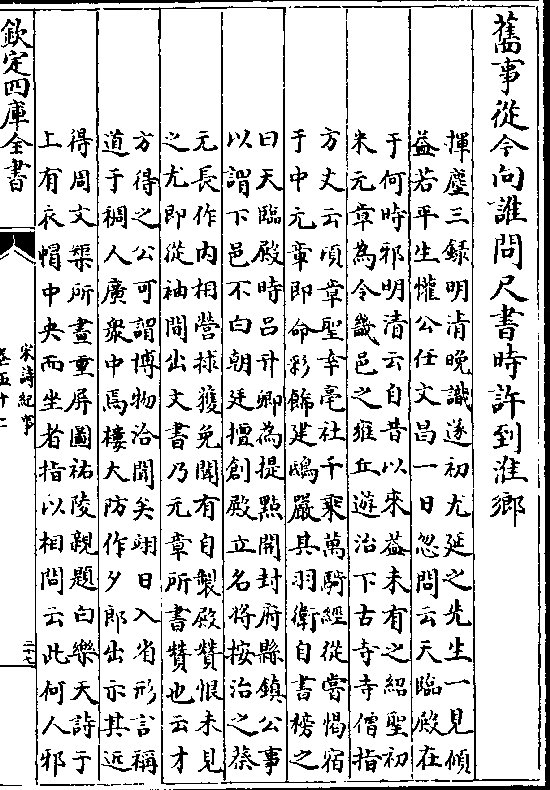 舊事從今向誰問尺書時許到淮鄉
揮麈三録明清晚識遂初尤延之先生一見傾
葢若平生懽公任文昌一日忽問云天臨殿在
于何時邪明清云自昔以來葢未有之紹聖初
米元章為令畿邑之雍丘遊治下古寺寺僧指
方丈云頃章聖幸亳社千乘萬騎經從嘗愒宿
于中元章即命彩飾建鴟嚴其羽衛自書榜之
曰天臨殿時吕升卿為提點開封府縣鎮公事
以謂下邑不白朝廷擅創殿立名将按治之蔡
元長作内相營捄獲免聞有自製殿賛恨未見
之尤即從袖間出文書乃元章所書賛也云才
方得之公可謂博物洽聞矣翊日入省形言稱
道于稠人廣衆中焉樓大防作夕郎出示其近
得周文榘所畫重屏圖祐陵親題白樂天詩于
上有衣帽中央而坐者指以相問云此何人邪
欽定四庫全書
宋詩紀事
卷五十二
二十七